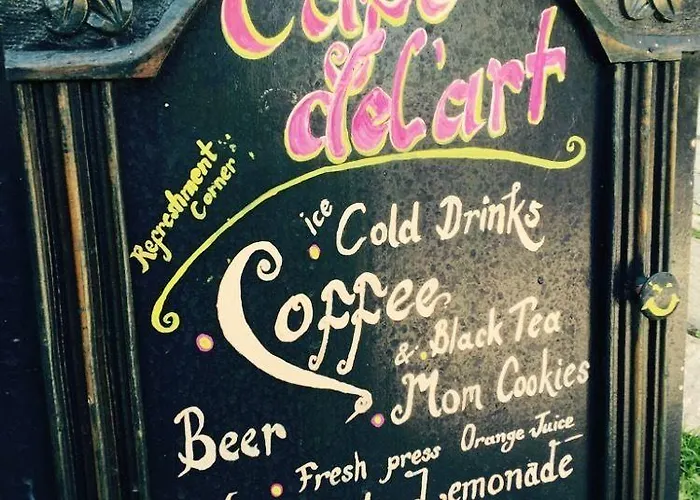 Café
del'art
Refreshment
Corner
ice Cold Drinks
Coffee
& Black Tea
Mom Cookies
Beer
Fresh press Orange Juice
Lemonade